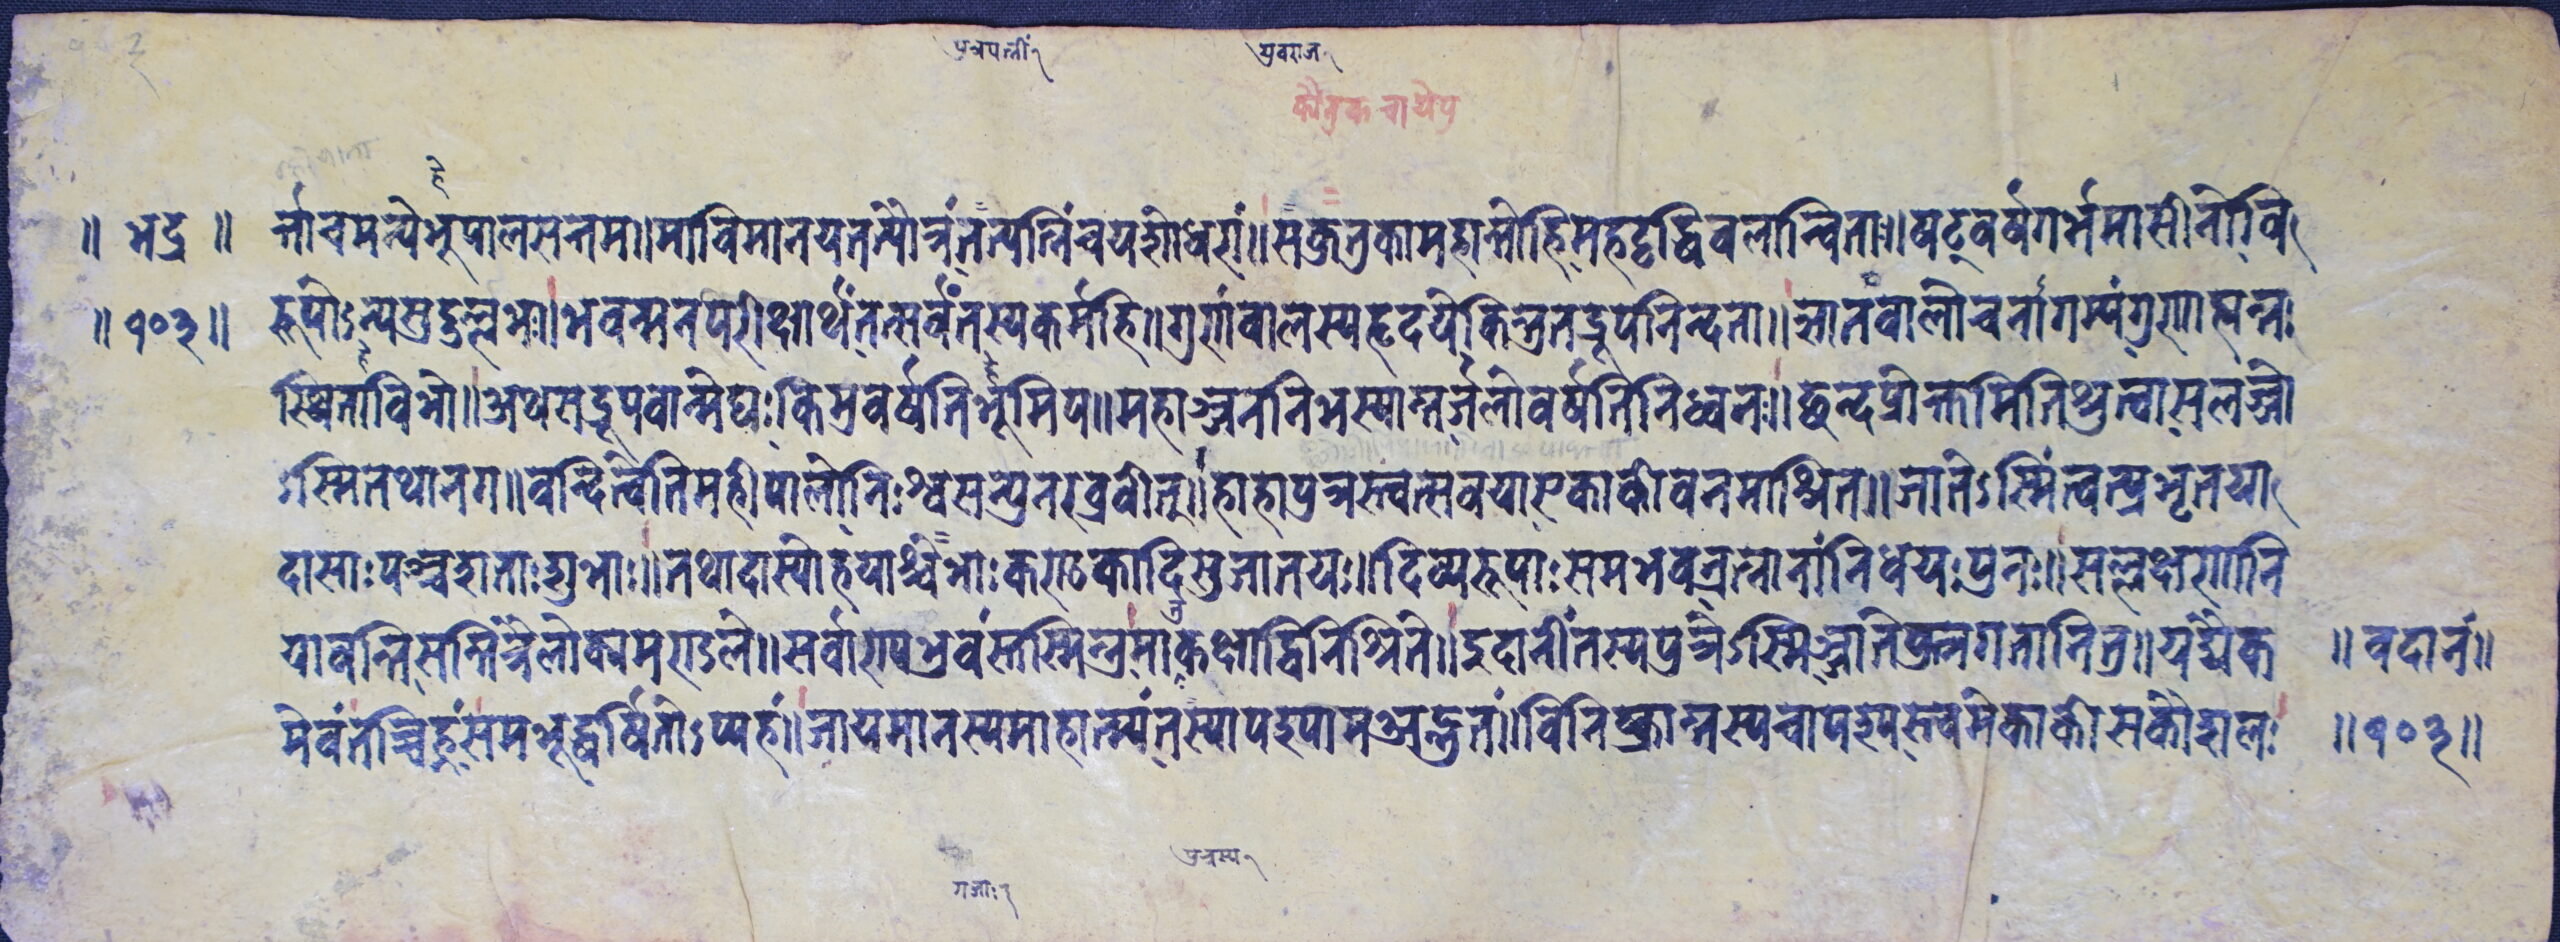 पुत्रपत्नीं१ युवराज१
कौतुक चायेपु
हे
॥ भद्र ॥ र्त्ताचमन्येभूपालसत्तम॥माविमानयतत्पौत्रंतत्पत्निंचयशोधरां॥सकुत्रकामहान्तोहिमहदृद्धिबलान्विताः॥षट्वर्षगर्भमासीनोवि
॥१०३॥ रूपोऽन्यसुदुल्लभः॥भवन्मनपरीक्षार्थंतत्सर्वंतस्यकर्महि॥गुणंवालस्यहृदयेकिन्नुतद्रूपनिन्दता॥ज्ञानंवालोचनांगम्यंगुणाह्यन्तः
स्थिताविभो॥अथसद्रूपवान्मेघःकिमुवर्षतिभूमिप॥महाञ्जननिभस्यान्तर्जलोवर्षतिनिध्वनः॥छन्दप्रोक्तमितिश्रुत्वासलज्जो
ऽस्मितथानग॥वन्दित्वेतिमहीपालोनिःश्वसन्पुनरब्रवीत्॥हाहापुत्रस्त्वत्सवयाएकाकीवनमाश्रित॥जातेऽस्मिंत्वत्प्रभृतया
दासाःपञ्चशताःशुभाः॥तथादास्योहयाश्चेभाःकण्ठकादिसुजातयः॥दिव्यरूपाःसमभवन्रत्नानांनिधयःपुनः॥सल्लक्षणानि
यावन्तिसन्तिंत्रैलोक्यमण्डले॥सर्वाण्यभुवंस्तस्मिन्नुमाकक्षाद्विनिश्रिते॥इदानींतस्यपुत्रेऽस्मिञ्जातेक्वनगतानितु॥यद्यैक ॥ वदानं॥
मेवंतच्चिह्नंसमभूद्धर्षितोऽप्यहं॥जायमानस्यमाहात्म्यंतस्यापश्यामअद्भुतं॥विनिष्क्रान्तस्यचापश्यस्त्वमेकाकीसकौशलः ॥१०३॥
पुत्रस्य१
गजाः१